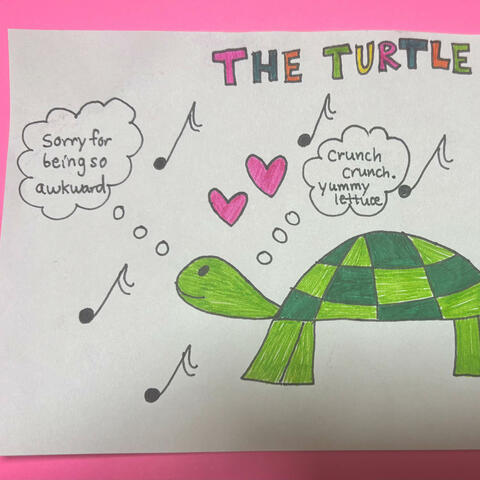 THE TURTLE
Sorry for
being so
awkward
Crunch
crunch.
yummy
lettuce